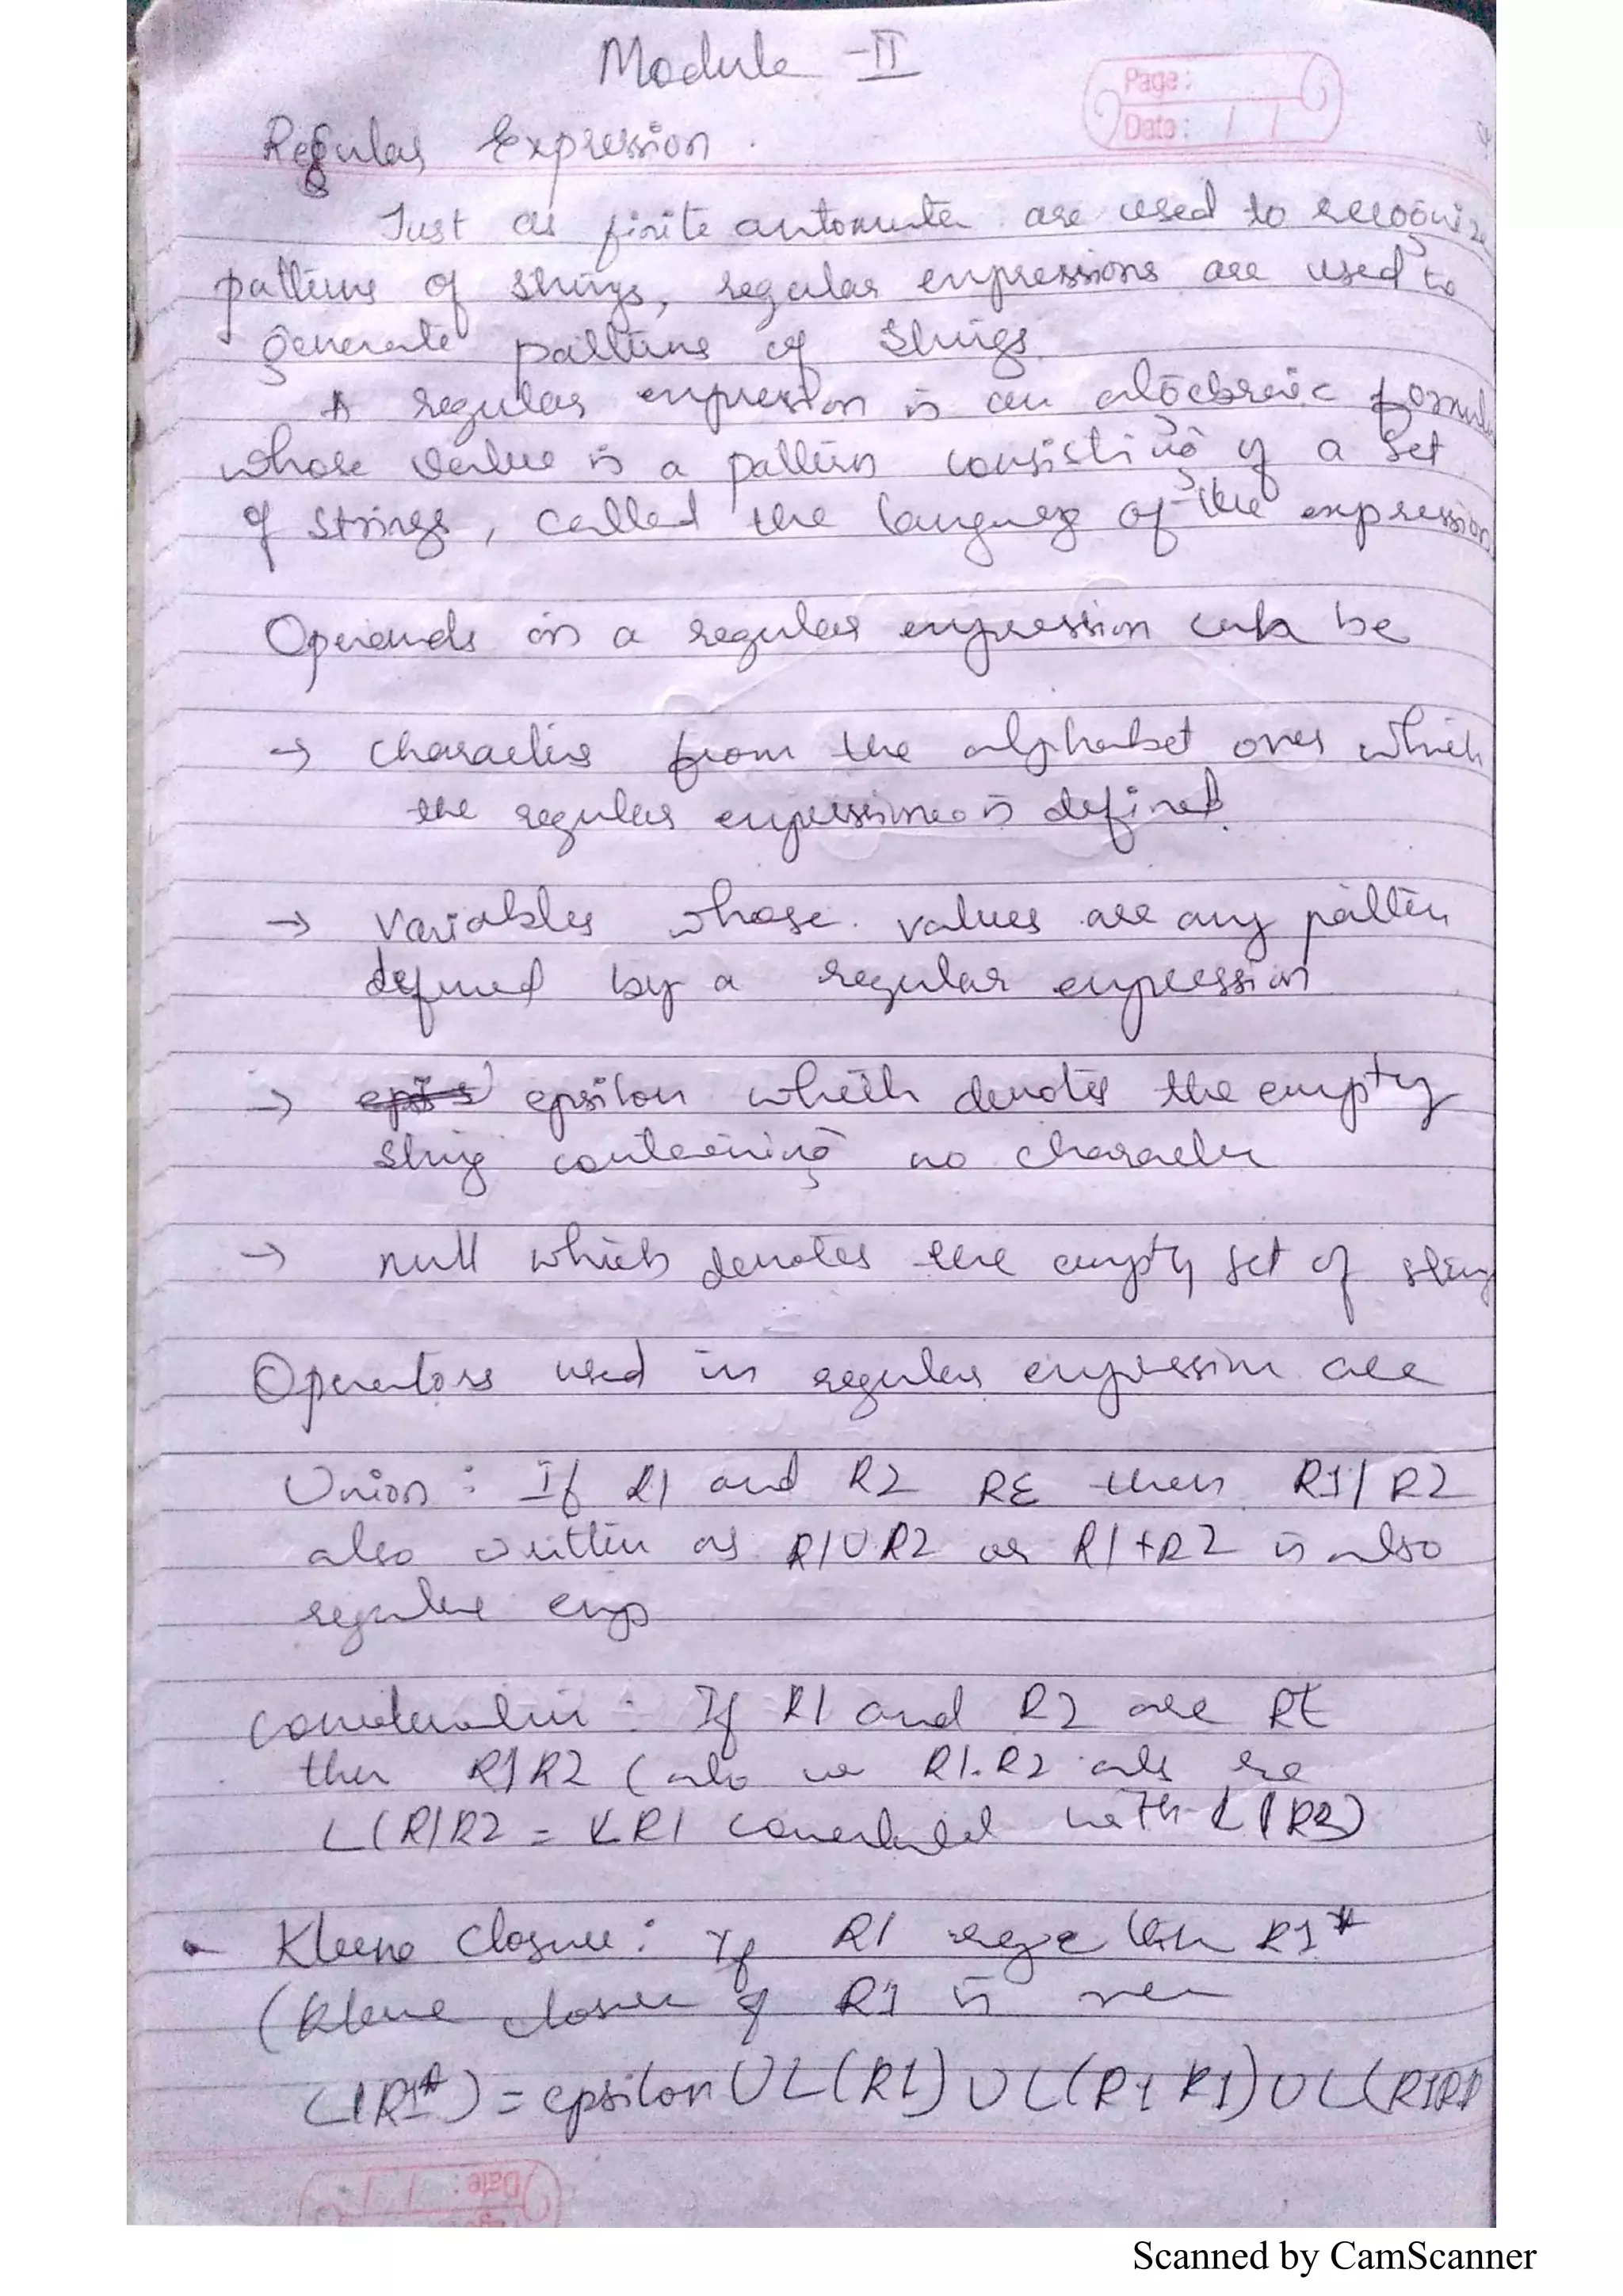 Module -II
Page:
Date: / /
Regular Expression.
Just as finite automata are used to recogniz
patterns of strings, regular expressions are used to
generate patterns of strings.
A regular expression is an algebraic formul
whose value is a pattern consisting of a set
of strings, called the language of the expression
Operands in a regular expression can be
→ characters from the alphabet over which
the regular expression is defined.
→ Variables whose values are any pattern
defined by a regular expression
→ epsilon which denotes the empty
string containing no character
→ null which denotes the empty set of string
Operators used in regular expression are
Union : If R1 and R2 RE then R1/R2
also written as R1UR2 or R1+R2 is also
regular exp
If R1 and R2 are RE
then R1R2 ( also R1.R2 re
L(R1R2 = with
- Kleene closure: If R1 then R1*
(Kleene closure of R1 is
L(R1*) = epsilon U L(R1) U L(R1R1) U L(R1R1
Date: / /
Scanned by CamScanner